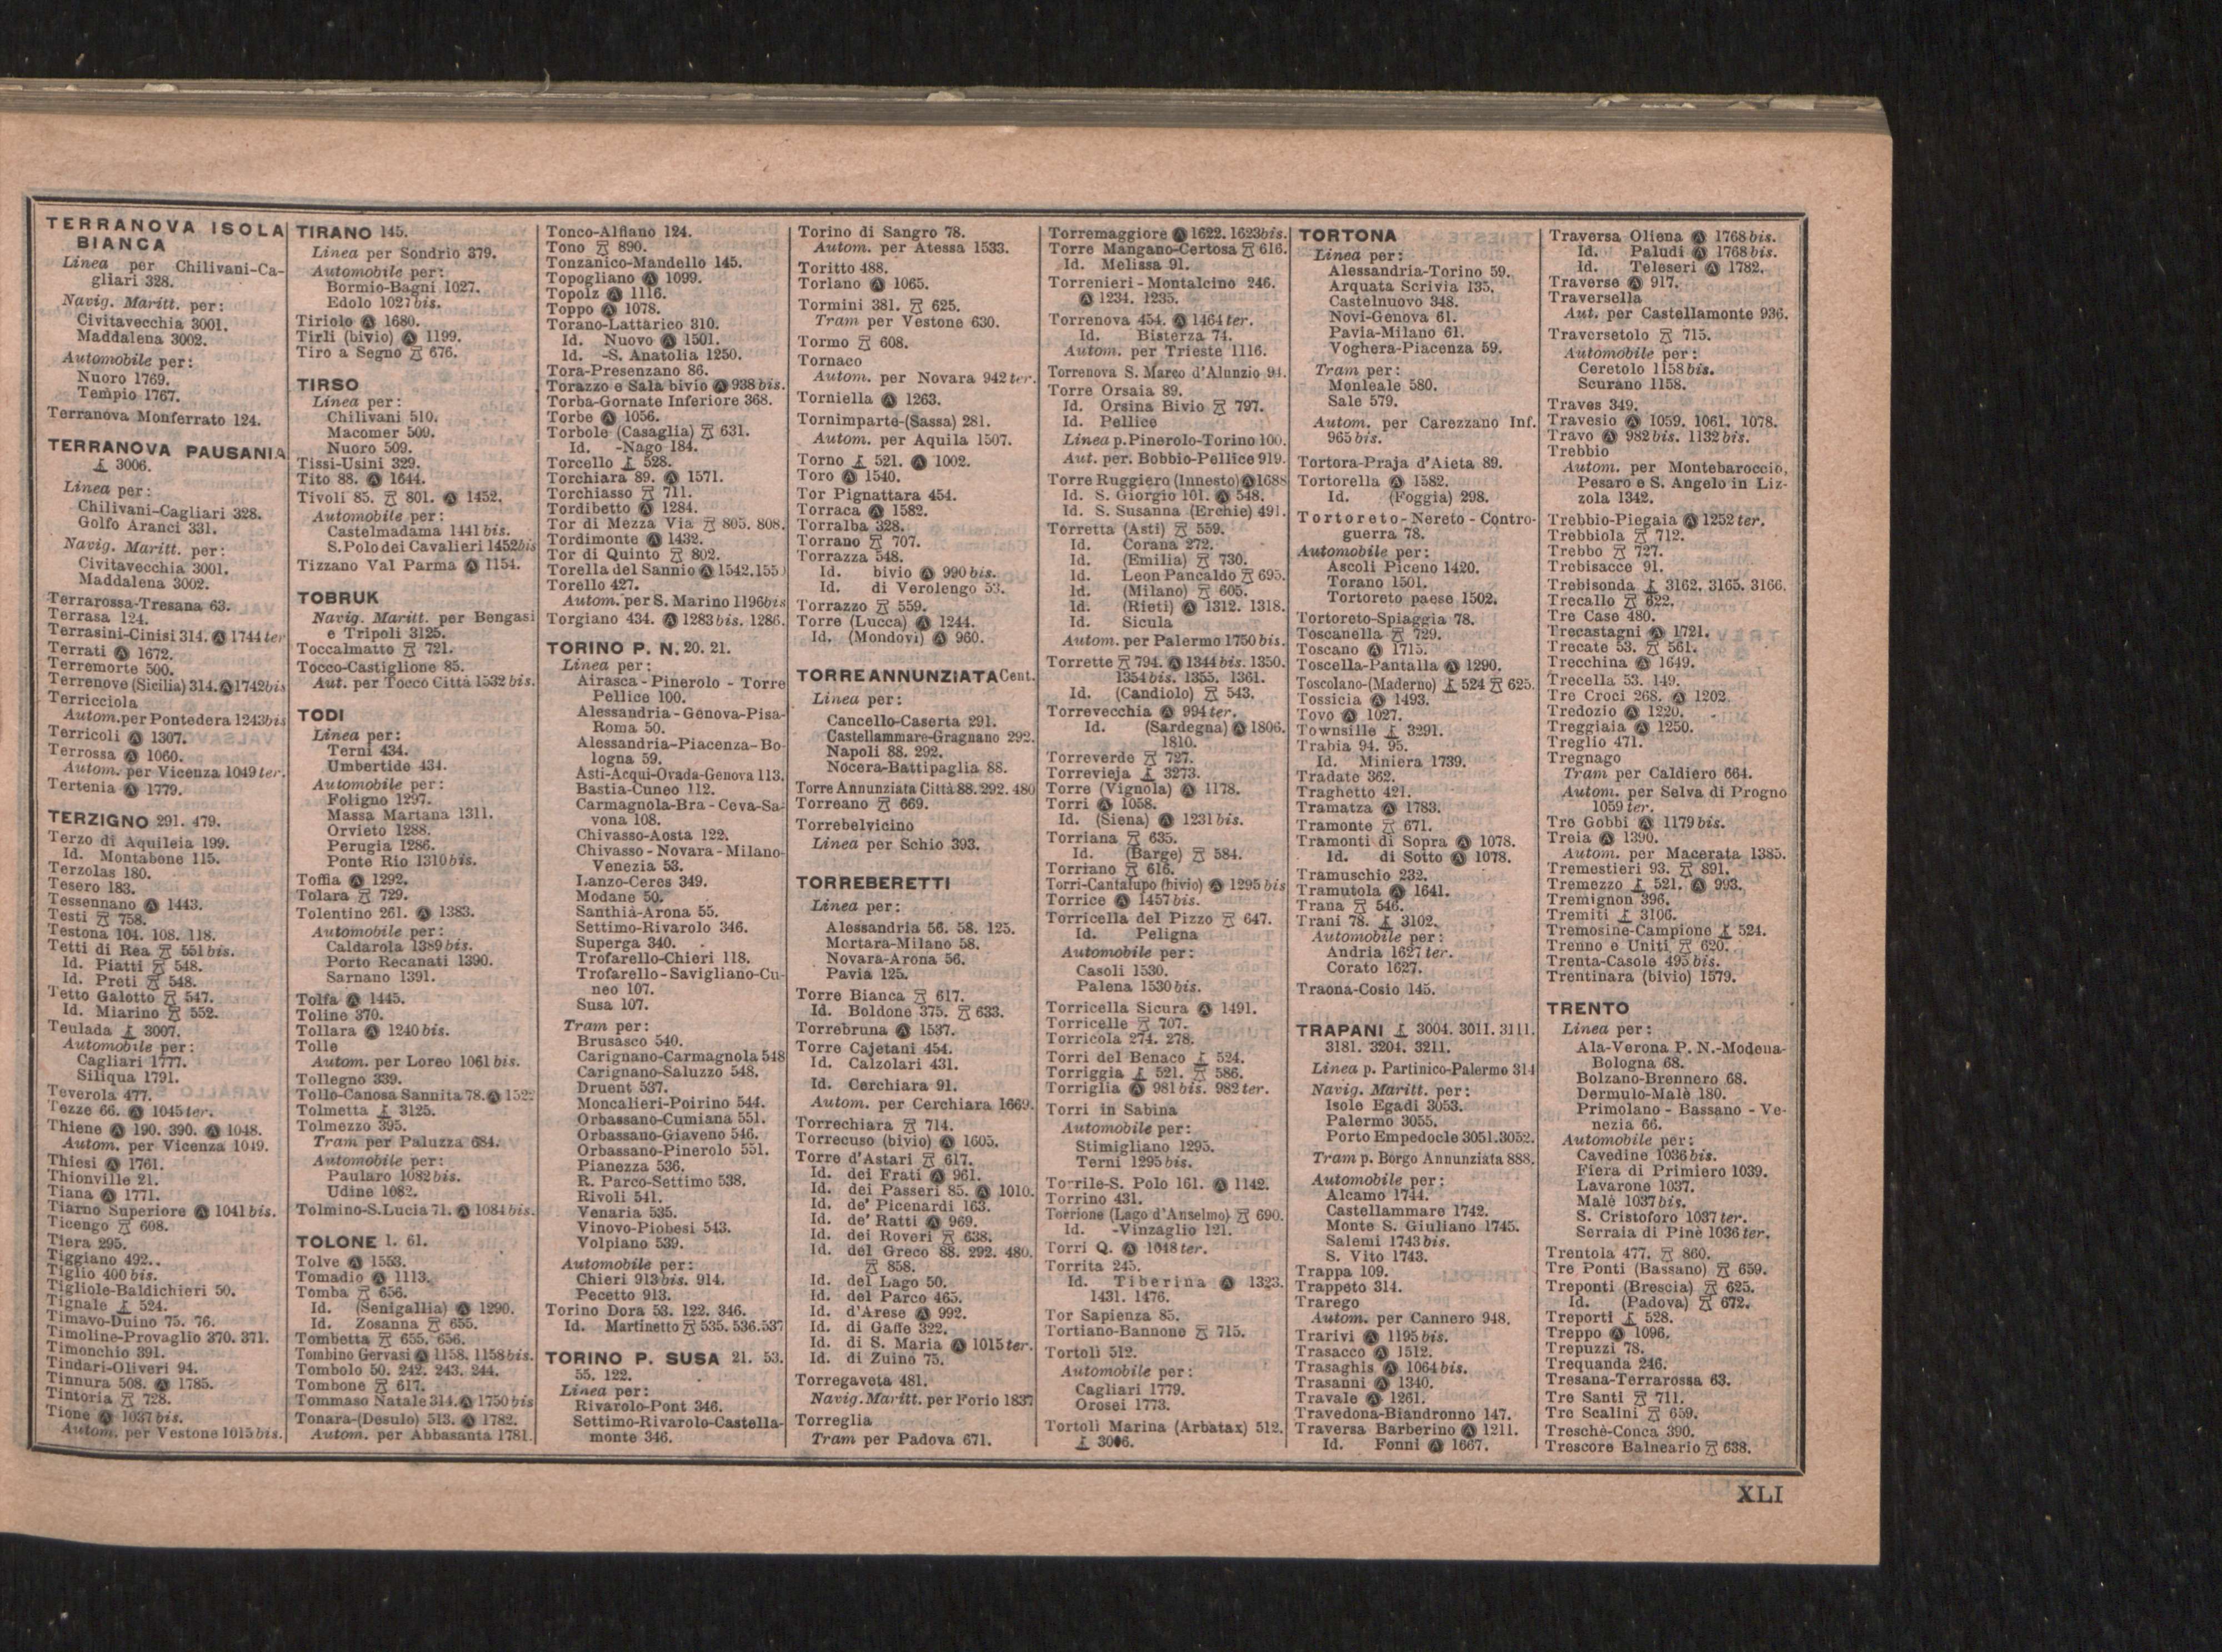 TERRANOVA ISOLA
BIANCA
Linea per Chilivani-Ca-
gliari 328.
Navig. Maritt. per:
Civitavecchia 3001.
Maddalena 3002.
Automobile per:
Nuoro 1769.
Tempio 1767.
Terranova Monferrato 124.
TERRANOVA PAUSANIA
3006.
Linea per:
Chilivani-Cagliari 328.
Golfo Aranci 331.
Navig. Maritt. per:
Civitavecchia 3001.
Maddalena 3002.
Terrarossa-Tresana 63.
Terrasa 124.
Terrasini-Cinisi 314. Ⓐ 1744 ter
Terrati Ⓐ 1672.
Terremorte 500.
Terrenove (Sicilia) 314. Ⓐ 1742bis
Terricciola
Autom. per Pontedera 1243bis
Terricoli Ⓐ 1307.
Terrossa Ⓐ 1060.
Autom. per Vicenza 1049 ter.
Tertenia Ⓐ 1779.
TERZIGNO 291. 479.
Terzo di Aquileia 199.
Id. Montabone 115.
Terzolas 180.
Tesero 183.
Tessennano Ⓐ 1443.
Testi 758.
Testona 104. 108. 118.
Tetti di Rea 551 bis.
Id. Piatti 548.
Id. Preti 548.
Tetto Galotto 547.
Id. Miarino 552.
Teulada 3007.
Automobile per:
Cagliari 1777.
Siliqua 1791.
Teverola 477.
Tezze 66. Ⓐ 1045 ter.
Thiene Ⓐ 190. 390. Ⓐ 1048.
Autom. per Vicenza 1049.
Thiesi Ⓐ 1761.
Thionville 21.
Tiana Ⓐ 1771.
Tiarno Superiore Ⓐ 1041 bis.
Ticengo 608.
Tiera 295.
Tiggiano 492.
Tiglio 400 bis.
Tigliole-Baldichieri 50.
Tignale 524.
Timavo-Duino 75. 76.
Timoline-Provaglio 370. 371.
Timonchio 391.
Tindari-Oliveri 94.
Tinnura 508. Ⓐ 1785.
Tintoria 728.
Tione Ⓐ 1037 bis.
Autom. per Vestone 1015 bis.
TIRANO 145.
Linea per Sondrio 379.
Automobile per:
Bormio-Bagni 1027.
Edolo 1027 bis.
Tiriolo Ⓐ 1680.
Tirli (bivio) Ⓐ 1199.
Tiro a Segno 676.
TIRSO
Linea per:
Chilivani 510.
Macomer 509.
Nuoro 509.
Tissi-Usini 329.
Tito 88. Ⓐ 1644.
Tivoli 85. 801. Ⓐ 1452.
Automobile per:
Castelmadama 1441 bis.
S. Polo dei Cavalieri 1452bis
Tizzano Val Parma Ⓐ 1154.
TOBRUK
Navig. Maritt. per Bengasi
e Tripoli 3125.
Toccalmatto 721.
Tocco-Castiglione 85.
Aut. per Tocco Città 1532 bis.
TODI
Linea per:
Terni 434.
Umbertide 434.
Automobile per:
Foligno 1297.
Massa Martana 1311.
Orvieto 1288.
Perugia 1286.
Ponte Rio 1310 bis.
Toffia Ⓐ 1292.
Tolara 729.
Tolentino 261. Ⓐ 1383.
Automobile per:
Caldarola 1389 bis.
Porto Recanati 1390.
Sarnano 1391.
Tolfa Ⓐ 1445.
Toline 370.
Tollara Ⓐ 1240 bis.
Tolle
Autom. per Loreo 1061 bis.
Tollegno 339.
Tollo-Canosa Sannita 78. Ⓐ
Tolmetta 3125.
Tolmezzo 395.
Tram per Paluzza 684.
Automobile per:
Paularo 1082 bis.
Udine 1082.
Tolmino-S. Lucia 71. Ⓐ 1084 bis.
TOLONE 1. 61.
Tolve Ⓐ 1553.
Tomadio Ⓐ 1113.
Tomba 656.
Id. (Senigallia) Ⓐ 1290.
Id. Zosanna 655.
Tombetta 655. 656.
Tombino Gervasi Ⓐ 1158. 1158 bis.
Tombolo 50. 242. 243. 244.
Tombone 617.
Tommaso Natale 314. Ⓐ 1750 bis
Tonara-(Desulo) 513. Ⓐ 1782.
Autom. per Abbasanta 1781.
Tonco-Alfiano 124.
Tono 890.
Tonzanico-Mandello 145.
Topogliano Ⓐ 1099.
Topolz Ⓐ 1116.
Toppo Ⓐ 1078.
Torano-Lattarico 310.
Id. Nuovo Ⓐ 1501.
Id. -S. Anatolia 1250.
Tora-Presenzano 86.
Torazzo e Sala bivio Ⓐ 938 bis.
Torba-Gornate Inferiore 368.
Torbe Ⓐ 1056.
Torbole (Casaglia) 631.
Id. -Nago 184.
Torcello 528.
Torchiara 89. Ⓐ 1571.
Torchiasso 711.
Tordibetto Ⓐ 1284.
Tor di Mezza Via 805. 808.
Tordimonte Ⓐ 1432.
Tor di Quinto 802.
Torella del Sannio Ⓐ 1542.
Torello 427.
Autom. per S. Marino 1196bis
Torgiano 434. Ⓐ 1283 bis. 1286.
TORINO P. N. 20. 21.
Linea per:
Airasca - Pinerolo - Torre
Pellice 100.
Alessandria - Genova-Pisa-
Roma 50.
Alessandria-Piacenza-Bo-
logna 59.
Asti-Acqui-Ovada-Genova 113.
Bastia-Cuneo 112.
Carmagnola-Bra - Ceva-Sa-
vona 108.
Chivasso-Aosta 122.
Chivasso - Novara - Milano-
Venezia 53.
Lanzo-Ceres 349.
Modane 50.
Santhià-Arona 55.
Settimo-Rivarolo 346.
Superga 340.
Trofarello-Chieri 118.
Trofarello - Savigliano-Cu-
neo 107.
Susa 107.
Tram per:
Brusasco 540.
Carignano-Carmagnola 548
Carignano-Saluzzo 548.
Druent 537.
Moncalieri-Poirino 544.
Orbassano-Cumiana 551.
Orbassano-Giaveno 546.
Orbassano-Pinerolo 551.
Pianezza 536.
R. Parco-Settimo 538.
Rivoli 541.
Venaria 535.
Vinovo-Piobesi 543.
Volpiano 539.
Automobile per:
Chieri 913 bis. 914.
Pecetto 913.
Torino Dora 53. 122. 346.
Id. Martinetto 535. 536. 537
TORINO P. SUSA 21. 53.
55. 122.
Linea per:
Rivarolo-Pont 346.
Settimo-Rivarolo-Castella-
monte 346.
Torino di Sangro 78.
Autom. per Atessa 1533.
Toritto 488.
Torlano Ⓐ 1065.
Tormini 381. 625.
Tram per Vestone 630.
Tormo 608.
Tornaco
Autom. per Novara 942 ter.
Torniella Ⓐ 1263.
Tornimparte-(Sassa) 281.
Autom. per Aquila 1507.
Torno 521. Ⓐ 1002.
Toro Ⓐ 1540.
Tor Pignattara 454.
Torraca Ⓐ 1582.
Torralba 328.
Torrano 707.
Torrazza 548.
Id. bivio Ⓐ 990 bis.
Id. di Verolengo 53.
Torrazzo 559.
Torre (Lucca) Ⓐ 1244.
Id. (Mondovì) Ⓐ 960.
TORRE ANNUNZIATA Cent.
Linea per:
Cancello-Caserta 291.
Castellammare-Gragnano 292.
Napoli 88. 292.
Nocera-Battipaglia 88.
Torre Annunziata Città 88. 292. 480
Torreano 669.
Torrebelvicino
Linea per Schio 393.
TORREBERETTI
Linea per:
Alessandria 56. 58. 125.
Mortara-Milano 58.
Novara-Arona 56.
Pavia 125.
Torre Bianca 617.
Id. Boldone 375. 633.
Torrebruna Ⓐ 1537.
Torre Cajetani 454.
Id. Calzolari 431.
Id. Cerchiara 91.
Autom. per Cerchiara 1669.
Torrechiara 714.
Torrecuso (bivio) Ⓐ 1605.
Torre d'Astari 617.
Id. dei Frati Ⓐ 961.
Id. dei Passeri 85. Ⓐ 1010.
Id. de' Picenardi 163.
Id. de' Ratti Ⓐ 969.
Id. dei Roveri 638.
Id. del Greco 88. 292. 480.
858.
Id. del Lago 50.
Id. del Parco 465.
Id. d'Arese Ⓐ 992.
Id. di Gaffe 322.
Id. di S. Maria Ⓐ 1015 ter.
Id. di Zuino 75.
Torregaveta 481.
Navig. Maritt. per Forio 1837
Torreglia
Tram per Padova 671.
Torremaggiore Ⓐ 1622. 1623bis.
Torre Mangano-Certosa 616.
Id. Melissa 91.
Torrenieri - Montalcino 246.
Ⓐ 1234. 1235.
Torrenova 454. Ⓐ 1464 ter.
Id. Bisterza 74.
Autom. per Trieste 1116.
Torrenova S. Marco d'Alunzio 94.
Torre Orsaia 89.
Id. Orsina Bivio 797.
Id. Pellice
Linea p. Pinerolo-Torino 100.
Aut. per. Bobbio-Pellice 919.
Torre Ruggiero (Innesto) Ⓐ 1688
Id. S. Giorgio 101. Ⓐ 548.
Id. S. Susanna (Erchie) 491.
Torretta (Asti) 559.
Id. Corana 272.
Id. (Emilia) 730.
Id. Leon Pancaldo 695.
Id. (Milano) 605.
Id. (Rieti) Ⓐ 1312. 1318.
Id. Sicula
Autom. per Palermo 1750 bis.
Torrette 794. Ⓐ 1344 bis. 1350.
1354 bis. 1355. 1361.
Id. (Candiolo) 543.
Torrevecchia Ⓐ 994 ter.
Id. (Sardegna) Ⓐ 1806.
1810.
Torreverde 727.
Torrevieja 3273.
Torre (Vignola) Ⓐ 1178.
Torri Ⓐ 1058.
Id. (Siena) Ⓐ 1231 bis.
Torriana 635.
Id. (Barge) 584.
Torriano 616.
Torri-Cantalupo (bivio) Ⓐ 1295 bis
Torrice Ⓐ 1457 bis.
Torricella del Pizzo 647.
Id. Peligna
Automobile per:
Casoli 1530.
Palena 1530 bis.
Torricella Sicura Ⓐ 1491.
Torricelle 707.
Torricola 274. 278.
Torri del Benaco 524.
Torriggia 521. 586.
Torriglia Ⓐ 981 bis. 982 ter.
Torri in Sabina
Automobile per:
Stimigliano 1295.
Terni 1295 bis.
Torrile-S. Polo 161. Ⓐ 1142.
Torrino 431.
Torrione (Lago d'Anselmo) 690.
Id. -Vinzaglio 121.
Torri Q. Ⓐ 1048 ter.
Torrita 245.
Id. Tiberina Ⓐ 1323.
1431. 1476.
Tor Sapienza 85.
Tortiano-Bannone 715.
Tortolì 512.
Automobile per:
Cagliari 1779.
Orosei 1773.
Tortolì Marina (Arbatax) 512.
3006.
TORTONA
Linea per:
Alessandria-Torino 59.
Arquata Scrivia 135.
Castelnuovo 348.
Novi-Genova 61.
Pavia-Milano 61.
Voghera-Piacenza 59.
Tram per:
Monleale 580.
Sale 579.
Autom. per Carezzano Inf.
965 bis.
Tortora-Praja d'Aieta 89.
Tortorella Ⓐ 1582.
Id. (Foggia) 298.
Tortoreto - Nereto - Contro-
guerra 78.
Automobile per:
Ascoli Piceno 1420.
Torano 1501.
Tortoreto paese 1502.
Tortoreto-Spiaggia 78.
Toscanella 729.
Toscano Ⓐ 1715.
Toscella-Pantalla Ⓐ 1290.
Toscolano-(Maderno) 524 625.
Tossicia Ⓐ 1493.
Tovo Ⓐ 1027.
Townsille 3291.
Trabia 94. 95.
Id. Miniera 1739.
Tradate 362.
Traghetto 421.
Tramatza Ⓐ 1783.
Tramonte 671.
Tramonti di Sopra Ⓐ 1078.
Id. di Sotto Ⓐ 1078.
Tramuschio 232.
Tramutola Ⓐ 1641.
Trana 546.
Trani 78. 3102.
Automobile per:
Andria 1627 ter.
Corato 1627.
Traona-Cosio 145.
TRAPANI 3004. 3011. 3111.
3181. 3204. 3211.
Linea p. Partinico-Palermo 314
Navig. Maritt. per:
Isole Egadi 3053.
Palermo 3055.
Porto Empedocle 3051. 3052.
Tram p. Borgo Annunziata 888.
Automobile per:
Alcamo 1744.
Castellammare 1742.
Monte S. Giuliano 1745.
Salemi 1743 bis.
S. Vito 1743.
Trappa 109.
Trappeto 314.
Trarego
Autom. per Cannero 948.
Trarivi Ⓐ 1195 bis.
Trasacco Ⓐ 1512.
Trasaghis Ⓐ 1064 bis.
Trasanni Ⓐ 1340.
Travale Ⓐ 1261.
Travedona-Biandronno 147.
Traversa Barberino Ⓐ 1211.
Id. Fonni Ⓐ 1667.
Traversa Oliena Ⓐ 1768 bis.
Id. Paludi Ⓐ 1768 bis.
Id. Teleseri Ⓐ 1782.
Traverse Ⓐ 917.
Traversella
Aut. per Castellamonte 936.
Traversetolo 715.
Automobile per:
Ceretolo 1158 bis.
Scurano 1158.
Traves 349.
Travesio Ⓐ 1059. 1061. 1078.
Travo Ⓐ 982 bis. 1132 bis.
Trebbio
Autom. per Montebaroccio,
Pesaro e S. Angelo in Liz-
zola 1342.
Trebbio-Piegaia Ⓐ 1252 ter.
Trebbiola 712.
Trebbo 727.
Trebisacce 91.
Trebisonda 3162. 3165. 3166.
Trecallo 622.
Tre Case 480.
Trecastagni Ⓐ 1721.
Trecate 53. 561.
Trecchina Ⓐ 1649.
Trecella 53. 149.
Tre Croci 268. Ⓐ 1202.
Tredozio Ⓐ 1220.
Treggiaia Ⓐ 1250.
Treglio 471.
Tregnago
Tram per Caldiero 664.
Autom. per Selva di Progno
1059 ter.
Tre Gobbi Ⓐ 1179 bis.
Treia Ⓐ 1390.
Autom. per Macerata 1385.
Tremestieri 93. 891.
Tremezzo 521. Ⓐ 993.
Tremignon 396.
Tremiti 3106.
Tremosine-Campione 524.
Trenno e Uniti 620.
Trenta-Casole 495 bis.
Trentinara (bivio) 1579.
TRENTO
Linea per:
Ala-Verona P. N.-Modena-
Bologna 68.
Bolzano-Brennero 68.
Dermulo-Malè 180.
Primolano - Bassano - Ve-
nezia 66.
Automobile per:
Cavedine 1036 bis.
Fiera di Primiero 1039.
Lavarone 1037.
Malè 1037 bis.
S. Cristoforo 1037 ter.
Serraia di Pinè 1036 ter.
Trentola 477. 860.
Tre Ponti (Bassano) 659.
Treponti (Brescia) 625.
Id. (Padova) 672.
Treporti 528.
Treppo Ⓐ 1096.
Trepuzzi 78.
Trequanda 246.
Tresana-Terrarossa 63.
Tre Santi 711.
Tre Scalini 659.
Treschè-Conca 390.
Trescore Balneario 638.
XLI